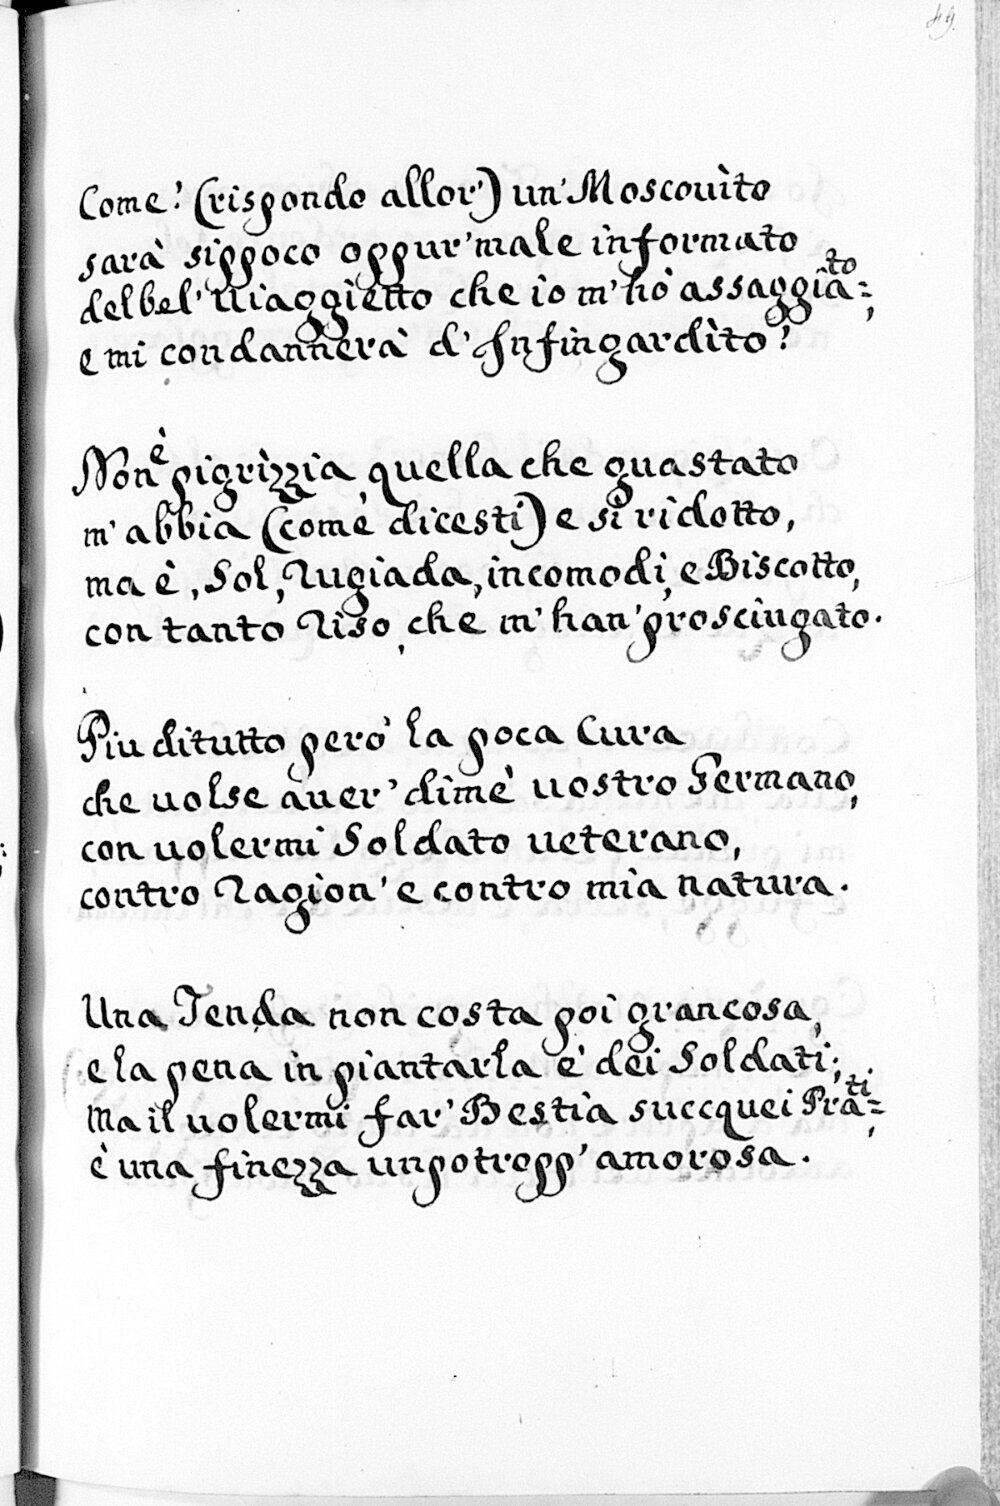 49.
Come? (rispondo allor') un' Moscouìto
sarà sippoco oppur' male informato
del bel' Uiaggietto che io m'hò assaggiàto;
e mi condannerà d'Infingardìto?
Non è pigrìzzia quella che guastato
m'abbia (comè dicesti) e sì ridotto,
ma è, Sol, Rugiada, incomodi, e Biscotto,
con tanto Riso, che m'han' prosciugato.
Piu ditutto però la poca Cura
che uolse auer' dimè uostro Germano,
con uolermi Soldato ueterano,
contro Ragion' e contro mia natura.
Una Tenda non costa poi grancosa,
e la pena in piantarla è dei Soldati;
Ma il uolermi far' Bestia succquei Pràti;
è una finezza unpotropp' amorosa.